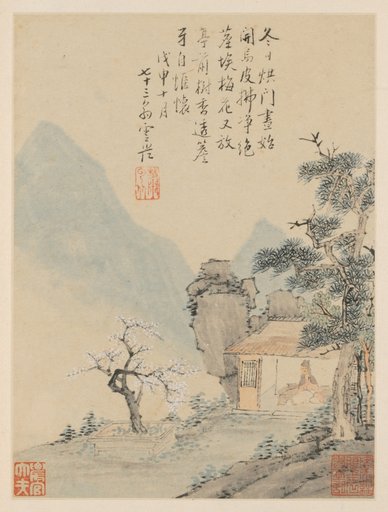 冬日烘门晝始
開烏皮拂净絶
塵埃梅花又放
亭前樹香透簷
牙自惬懷
戊申十月
七十三翁雲從